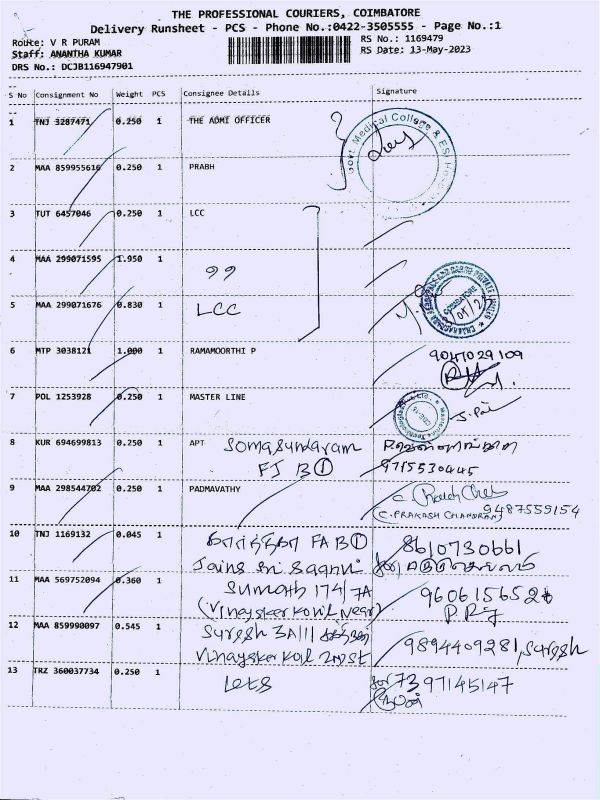 THE PROFESSIONAL COURIERS, COIMBATORE
Delivery Runsheet - PCS - Phone No.:0422-3505555 - Page No.:1
Route: V R PURAM
RS No.: 1169479
Staff: ANANTHA KUMAR
RS Date: 13-May-2023
DRS No.: DCJB116947901
S No Consignment No Weight PCS Consignee Details Signature
1 TNJ 3287471 0.250 1 THE ADMI OFFICER
Govt Medical College & ESI Hospital
2 MAA 859955616 0.250 1 PRABH
3 TUT 6457046 0.250 1 LCC
4 MAA 299071595 1.950 1 99
COIMBATORE
5 MAA 299071676 0.830 1 LCC
6 MTP 3038121 1.000 1 RAMAMOORTHI P
9047029109
7 POL 1253928 0.250 1 MASTER LINE
8 KUR 694699813 0.250 1 APT Somasundaram
FJ B①
9715530445
9 MAA 298544702 0.250 1 PADMAVATHY
(C. PRAKASH CHANDRAN) 9487559154
10 TNJ 1169132 0.045 1 கார்த்திகா FA B① 8610730661
11 MAA 569752094 0.360 1 Sumath 174/7A
(Vinaysker Kovil Near)
9606156528
12 MAA 859990097 0.545 1 Suresh 3A/11
Vinaysker Koil 2nd st
9894409281, Suresh
13 TRZ 360037734 0.250 1 LETS
7397145147